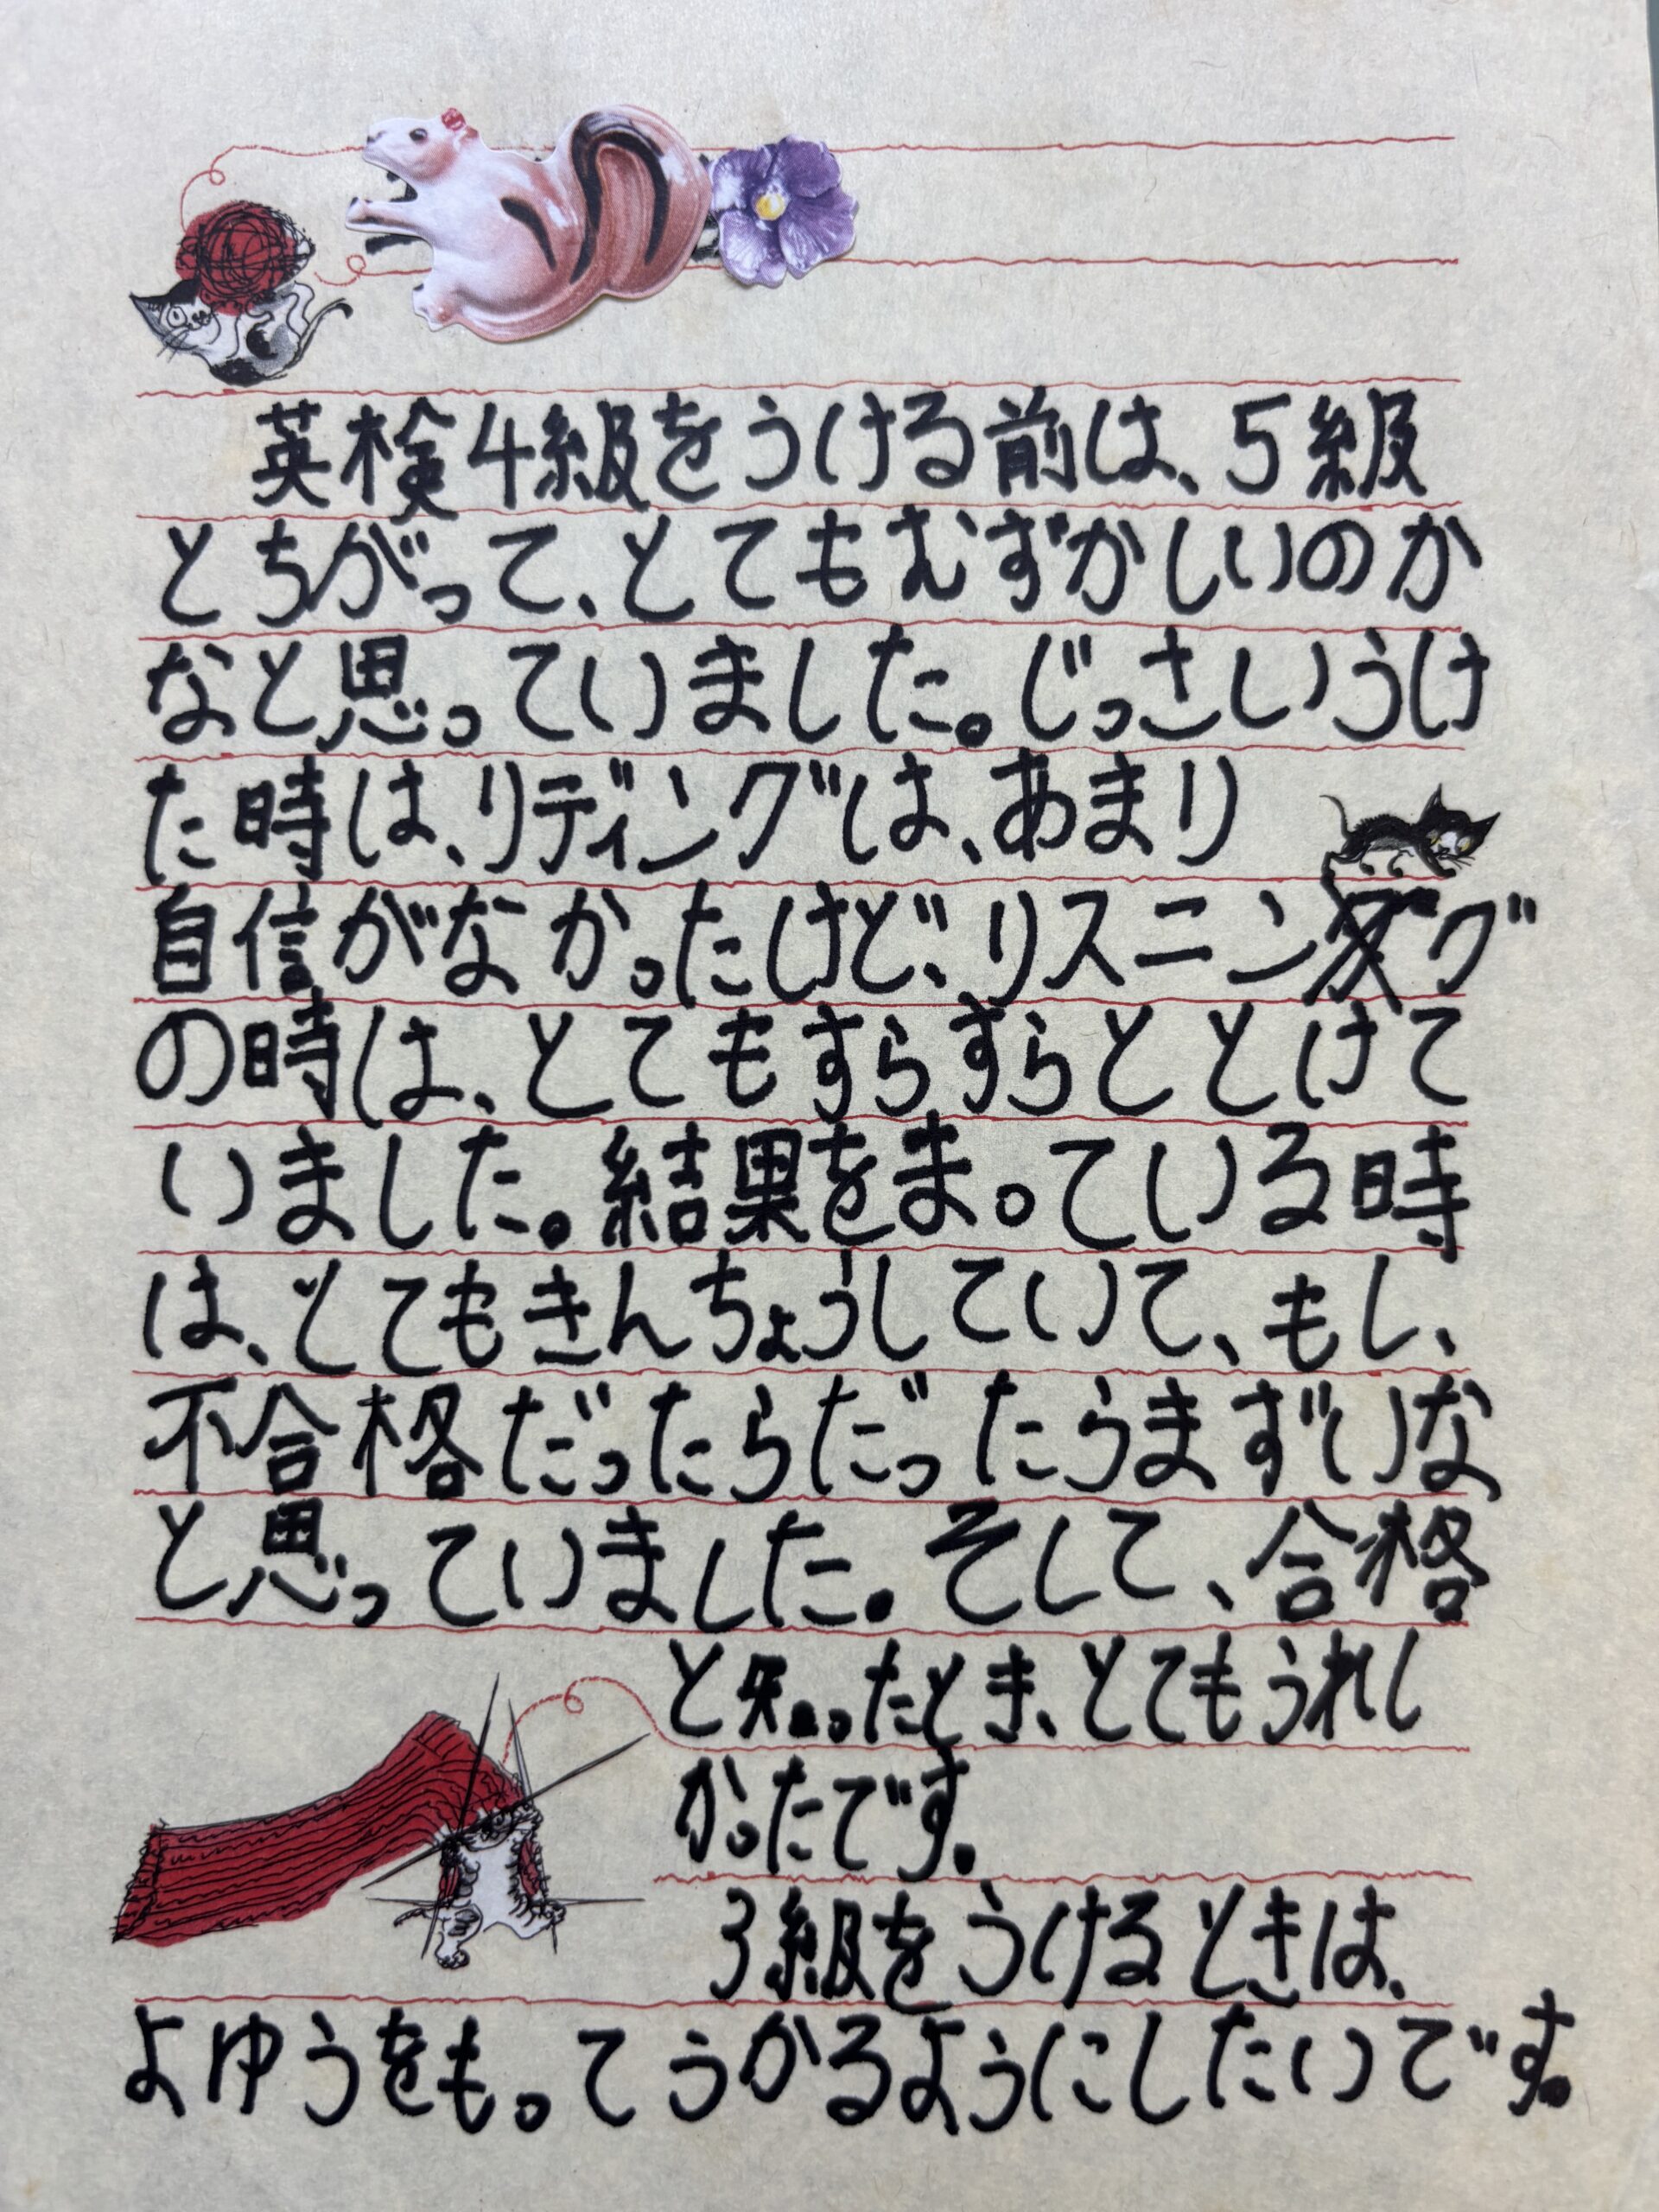 英検4級をうける前は、5級
とちがって、とてもむずかしいのか
なと思っていました。じっさいうけ
た時は、リディングは、あまり
自信がなかったけど、リスニング
の時は、とてもすらすらととけて
いました。結果をまっている時
は、とてもきんちょうしていて、もし、
不合格だったらだったうまずいな
と思っていました。そして、合格
と知ったとき、とてもうれし
かったです。
3級をうけるときは、
よゆうをもってうかるようにしたいです。